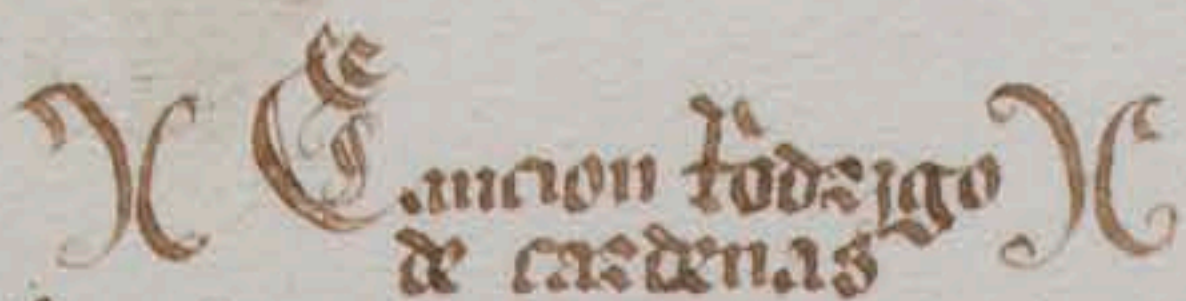 Cancion Rodrigo
de cardenas